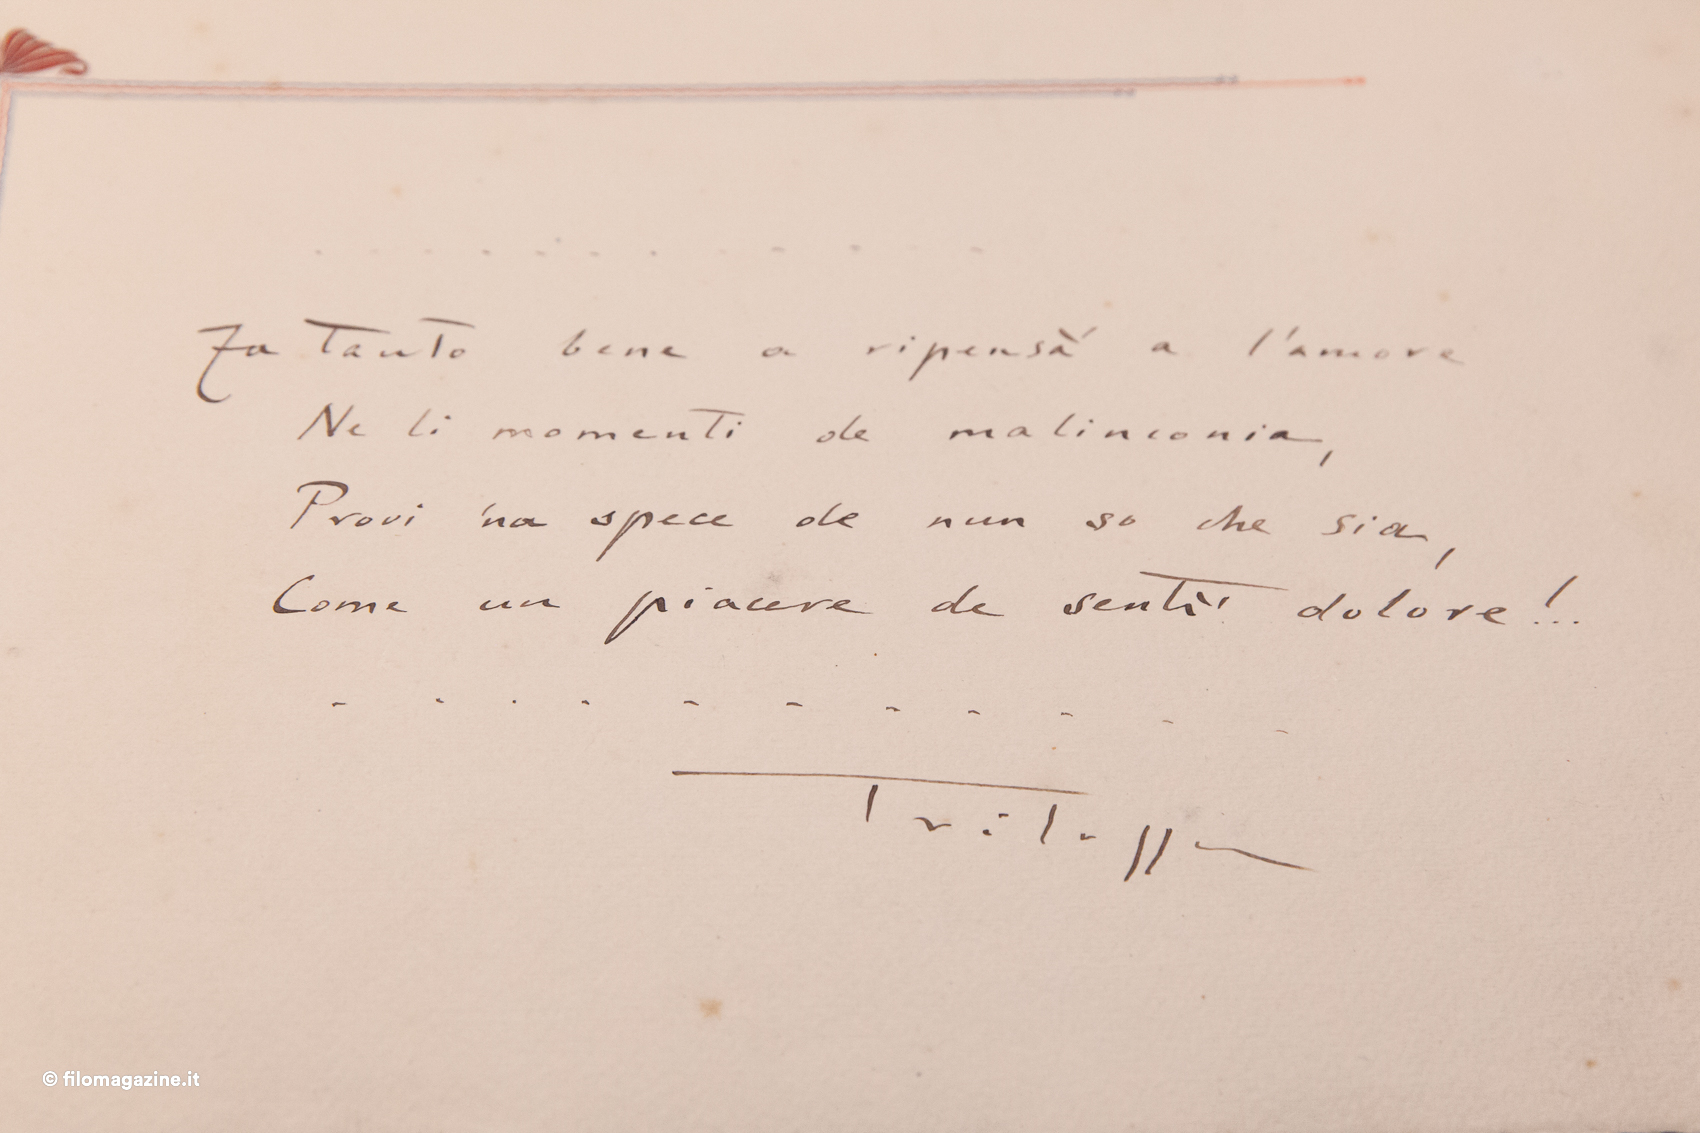 . . . . . . . . . .
Fa tanto bene a ripensà' a l'amore
Ne li momenti de malinconia,
Provi 'na spece de nun so che sia,
Come un piacere de sentì' dolore!...
. . . . . . . . . . .
Trilussa
© filomagazine.it